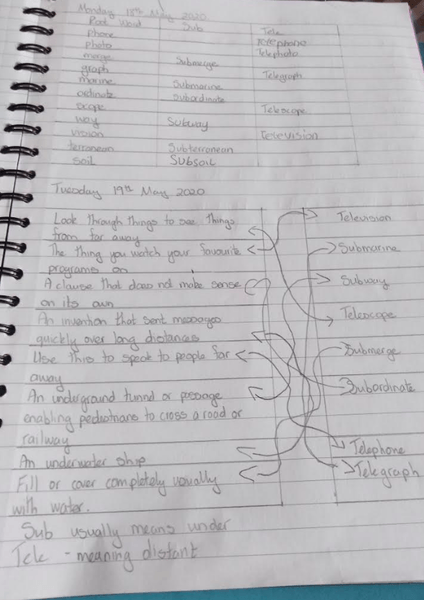 Monday 18th May 2020
Root Word Sub Tele
phone Telephone
photo Telephoto
merge Submerge
graph Telegraph
marine Submarine
ordinate Subordinate
scope Telescope
way Subway
vision Television
terranean Subterranean
soil Subsoil
Tuesday 19th May 2020
Look through things to see things from far away
Television
The thing you watch your favourite programs on
Submarine
A clause that does not make sense on its own
Subway
An invention that sent messages quickly over long distances
Telescope
Use this to speak to people far away
Submerge
An underground tunnel or passage enabling pedestrians to cross a road or railway
Subordinate
An underwater ship
Telephone
Fill or cover completely usually with water.
Telegraph
Sub usually means under
Tele - meaning distant